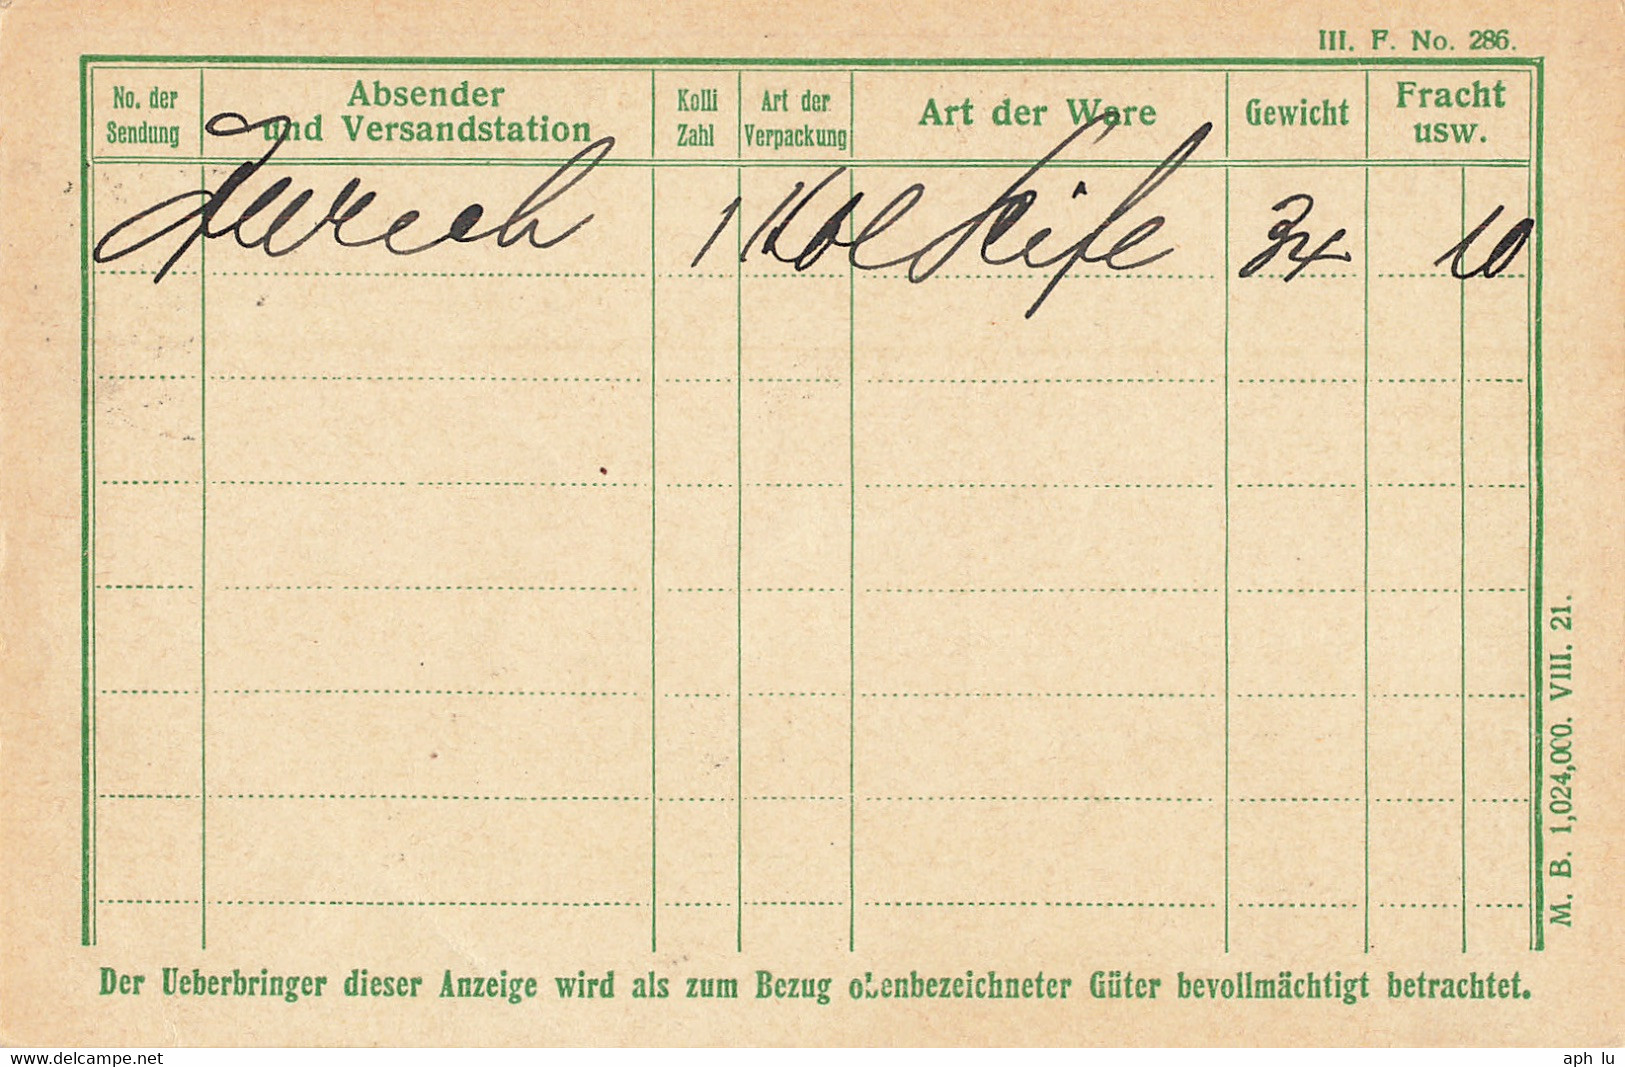 III. F. No. 286.
No. der Sendung
Absender und Versandstation
Kolli Zahl
Art der Verpackung
Art der Ware
Gewicht
Fracht usw.
Zurich 1 Kol Seife 34 10
Der Ueberbringer dieser Anzeige wird als zum Bezug obenbezeichneter Güter bevollmächtigt betrachtet.
M. B. 1,024,000. VIII. 21.
www.delcampe.net
aph lu